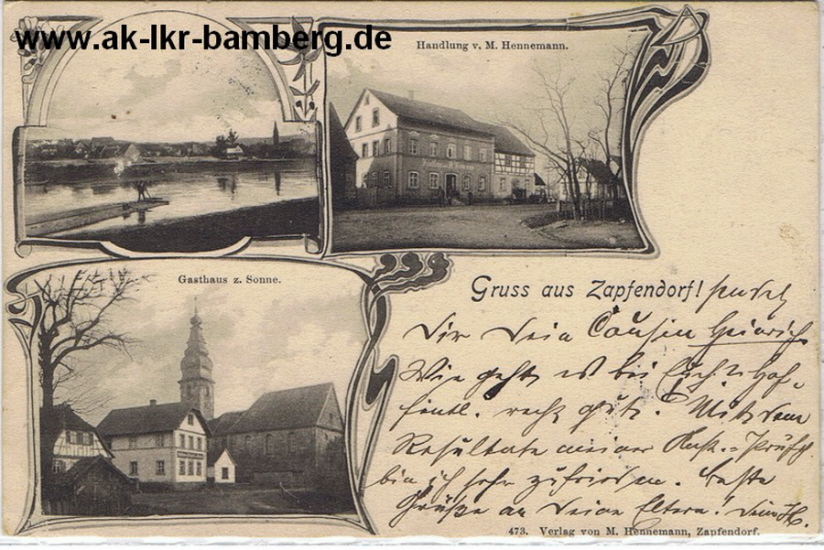 www.ak-lkr-bamberg.de
Handlung v. M. Hennemann.
Gasthaus z. Sonne.
Gruss aus Zapfendorf! sendet
Dir Dein Cousin Heinrich.
Wie geht es bei Euch? Hof-
fentl. recht gut. Mit dem
Resultate meiner
bin ich sehr zufrieden. Beste
Grüße an Deine Eltern! Dein H.
473. Verlag von M. Hennemann, Zapfendorf.